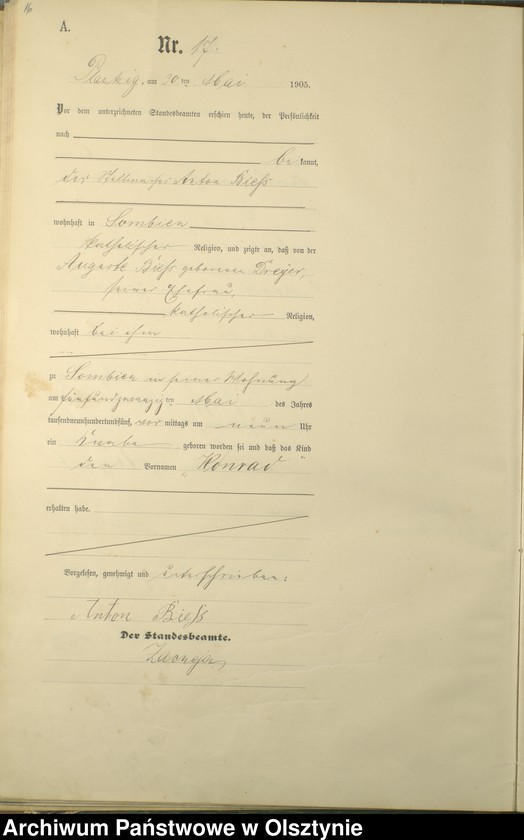 16
A.
Nr. 17.
am 30 ten Mai 1905.
Vor dem unterzeichneten Standesbeamten erschien heute, der Persönlichkeit
nach
be kannt,
der Stellmacher Anton Bieß
wohnhaft in Lombien
katholischer Religion, und zeigte an, daß von der
Auguste Bieß geborenen Dreyer,
seiner Ehefrau,
katholischer Religion,
wohnhaft bei ihm
zu Lombien in seiner Wohnung
am fünfundzwanzig ten Mai des Jahres
tausendneunhundertundfünf, vor mittags um neun Uhr
ein Knabe geboren worden sei und daß das Kind
den Vornamen „Konrad“
erhalten habe.
Vorgelesen, genehmigt und unterschrieben:
Anton Bieß
Der Standesbeamte.
Archiwum Państwowe w Olsztynie